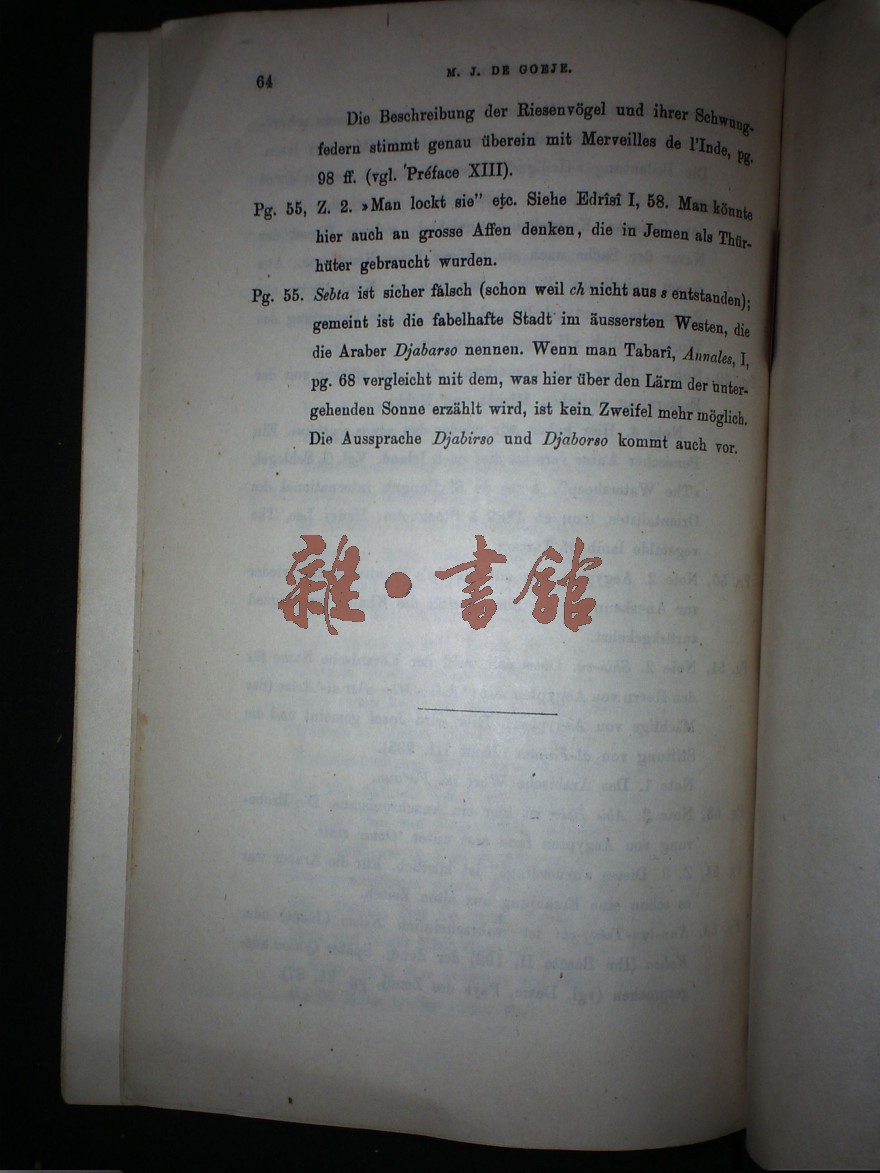 64
M. J. DE GOEJE.
Die Beschreibung der Riesenvögel und ihrer Schwung-
federn stimmt genau überein mit Merveilles de l'Inde, pg.
98 ff. (vgl. Préface XIII).
Pg. 55, Z. 2. »Man lockt sie" etc. Siehe Edrîsî I, 58. Man könnte
hier auch an grosse Affen denken, die in Jemen als Thür-
hüter gebraucht wurden.
Pg. 55. Sebta ist sicher falsch (schon weil ch nicht aus s entstanden);
gemeint ist die fabelhafte Stadt im äussersten Westen, die
die Araber Djabarso nennen. Wenn man Tabarî, Annales, I,
pg. 68 vergleicht mit dem, was hier über den Lärm der unter-
gehenden Sonne erzählt wird, ist kein Zweifel mehr möglich.
Die Aussprache Djabirso und Djaborso kommt auch vor.
雜·書館